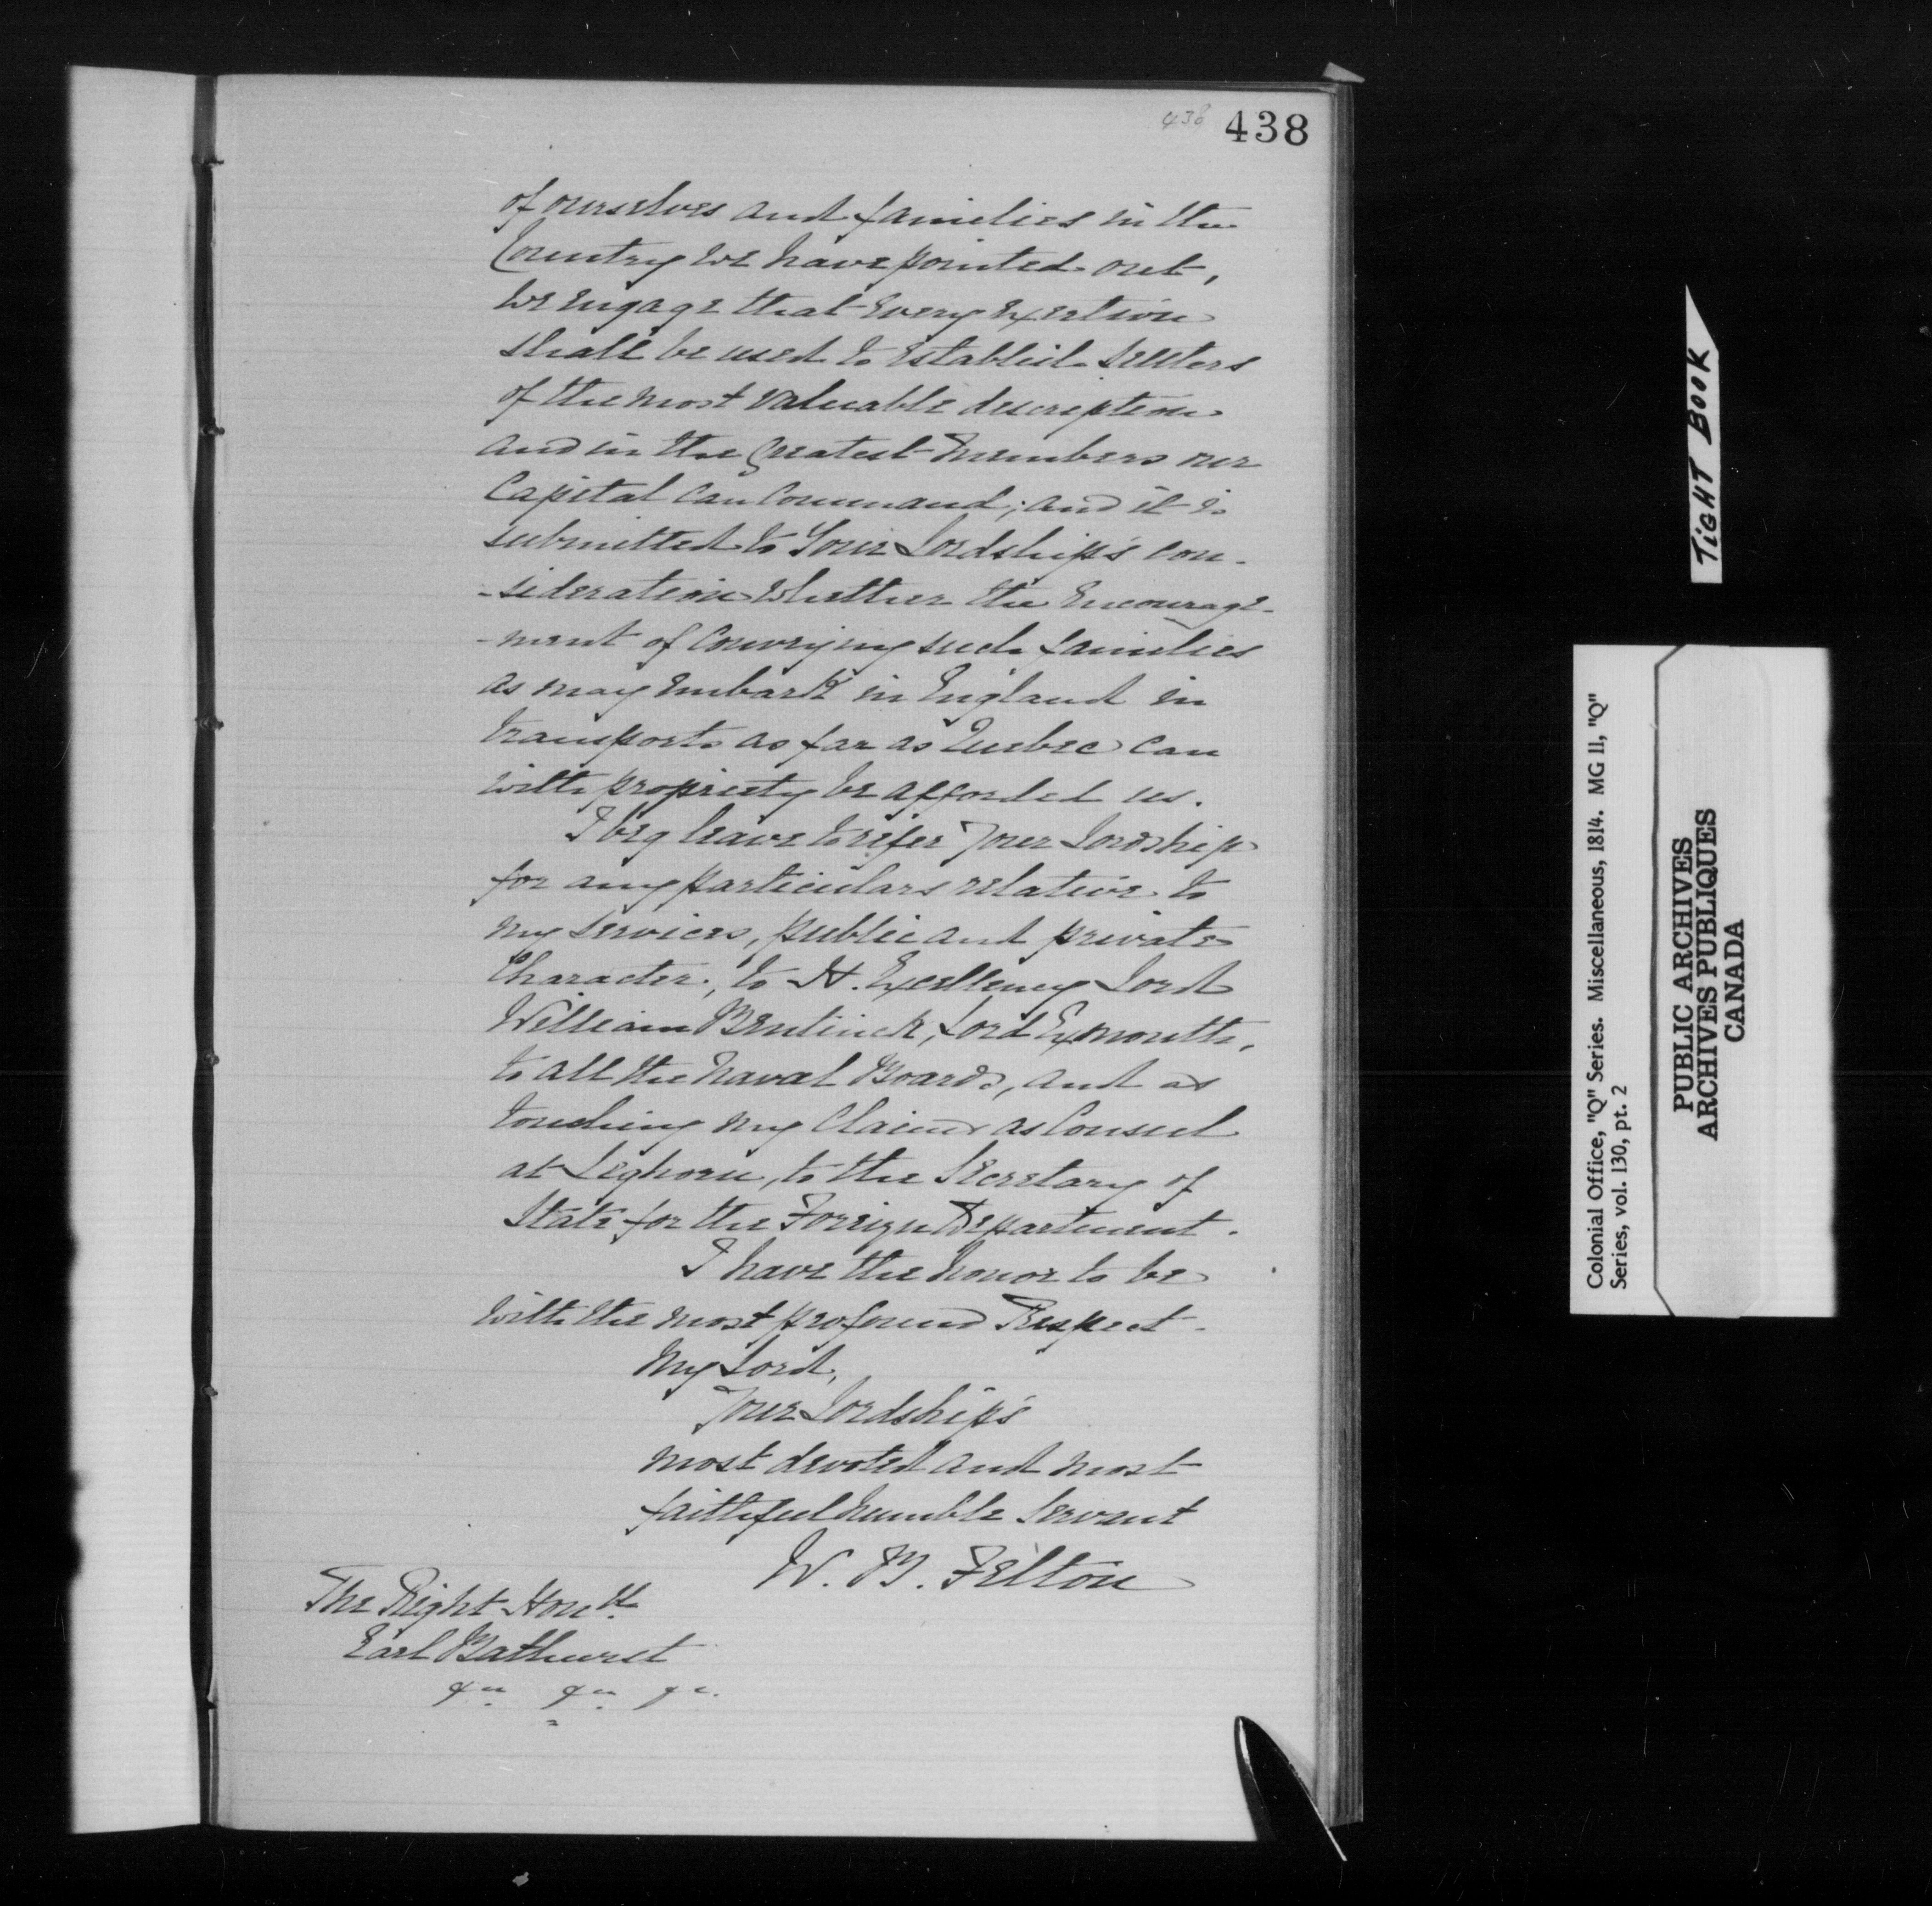 438 438
of ourselves and families in the
Country we have pointed out,
we engage that every exertion
shall be used to establish settlers
of the most valuable description
and in the greatest numbers our
Capital can command; and it is
submitted to Your Lordship's con-
-sideration whether the encourage-
-ment of conveying such families
as may embark in England in
transports as far as Quebec can
with propriety be afforded us.
I beg leave to refer Your Lordship
for any particulars relative to
my services, public and private
Character, to H. Excellency Lord
William Bentinck, Lord Exmouth,
to all the Naval Boards, and as
touching my Claims as Consul
at Leghorn, to the Secretary of
State for the Foreign Department.
I have the honor to be
with the most profound Respect
My Lord,
Your Lordship's
most devoted and most
faithful humble Servant
W. B. Felton
The Right Honble
Earl Bathurst
&c &c &c
TIGHT BOOK
Colonial Office, "Q" Series. Miscellaneous, 1814. MG 11, "Q"
Series, vol. 130, pt. 2
PUBLIC ARCHIVES
ARCHIVES PUBLIQUES
CANADA